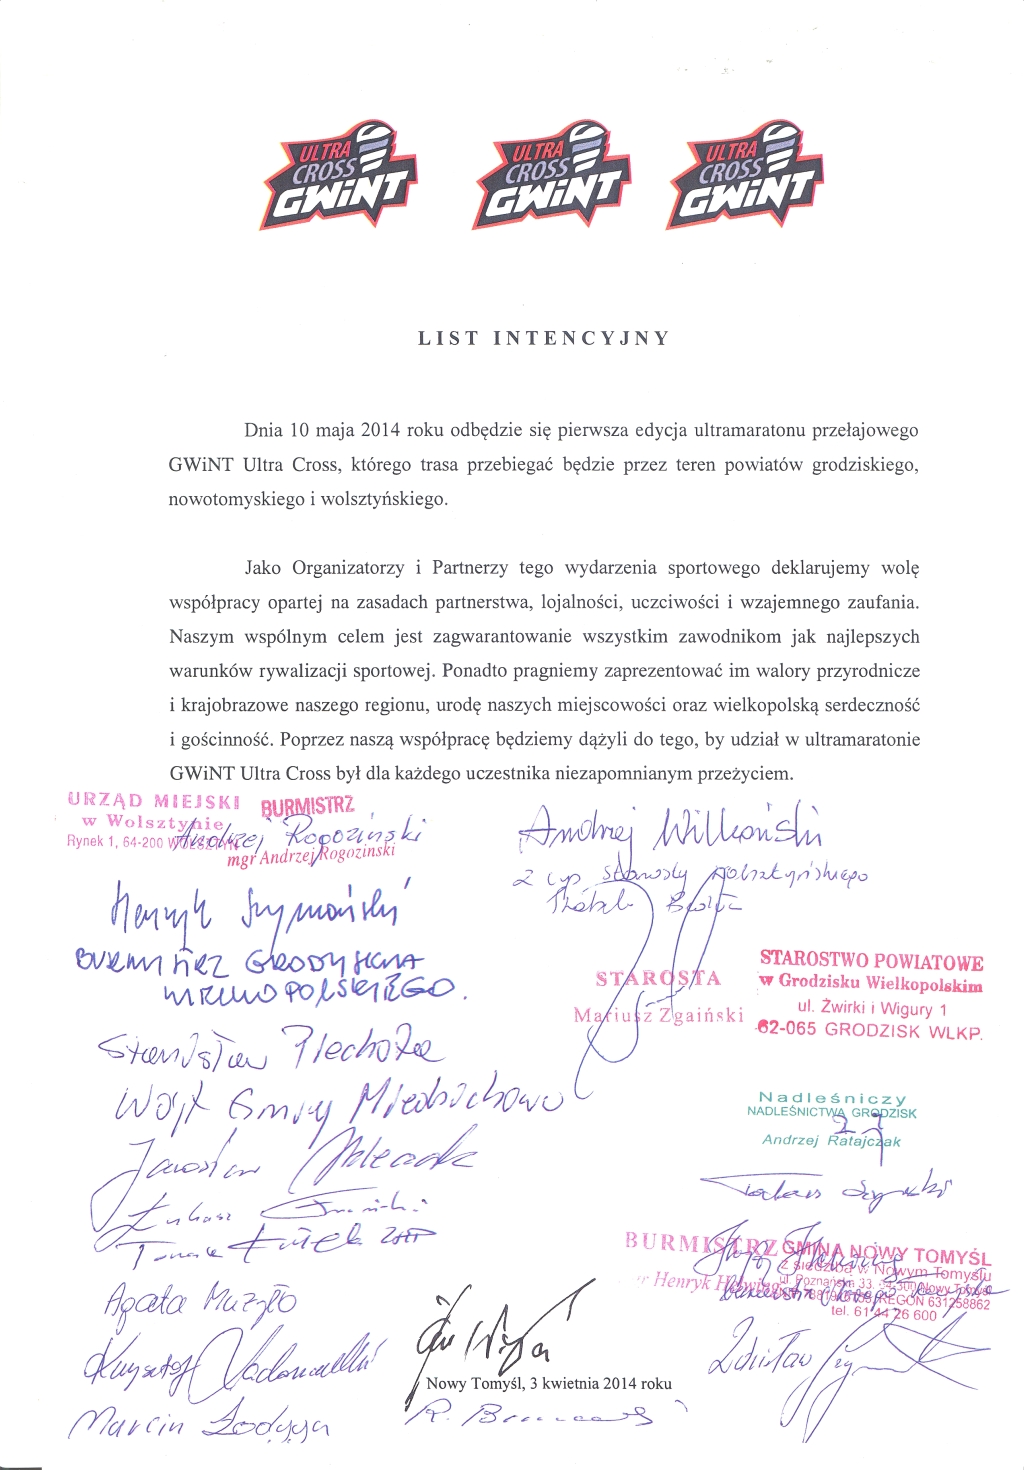 ULTRA CROSS GWiNT
ULTRA CROSS GWiNT
ULTRA CROSS GWiNT
LIST INTENCYJNY
Dnia 10 maja 2014 roku odbędzie się pierwsza edycja ultramaratonu przełajowego
GWiNT Ultra Cross, którego trasa przebiegać będzie przez teren powiatów grodziskiego,
nowotomyskiego i wolsztyńskiego.
Jako Organizatorzy i Partnerzy tego wydarzenia sportowego deklarujemy wolę
współpracy opartej na zasadach partnerstwa, lojalności, uczciwości i wzajemnego zaufania.
Naszym wspólnym celem jest zagwarantowanie wszystkim zawodnikom jak najlepszych
warunków rywalizacji sportowej. Ponadto pragniemy zaprezentować im walory przyrodnicze
i krajobrazowe naszego regionu, urodę naszych miejscowości oraz wielkopolską serdeczność
i gościnność. Poprzez naszą współpracę będziemy dążyli do tego, by udział w ultramaratonie
GWiNT Ultra Cross był dla każdego uczestnika niezapomnianym przeżyciem.
URZĄD MIEJSKI
w Wolsztynie
Rynek 1, 64-200 WOLSZTYN
BURMISTRZ
Andrzej Rogoziński
mgr Andrzej Rogozinski
Andrzej Wilkoński
Henryk Szymański
BURMISTRZ GRODZISKA
WIELKOPOLSKIEGO.
STAROSTA
Mariusz Zgaiński
STAROSTWO POWIATOWE
w Grodzisku Wielkopolskim
ul. Żwirki i Wigury 1
62-065 GRODZISK WLKP.
Stanisław Piechota
Wójt Gminy Miedzichowo
Nadleśniczy
NADLEŚNICTWA GRODZISK
Andrzej Ratajczak
Jarosław
Łukasz
BURMISTRZ
GMINA NOWY TOMYŚL
z siedzibą w Nowym Tomyślu
ul. Poznańska 33,
REGON 631258862
tel. 61 44 26 600
Agata Muzyło
Krzysztof
Zdzisław
Nowy Tomyśl, 3 kwietnia 2014 roku
Marcin